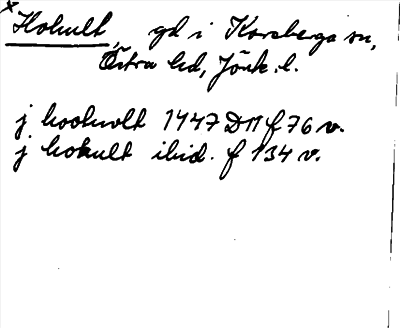 x Hokult, gd i Korsberga sn,
Östra hd, Jönk. l.
j hochvlt 1447 D11 f 76 v.
j hokult ibid. f 134 v.